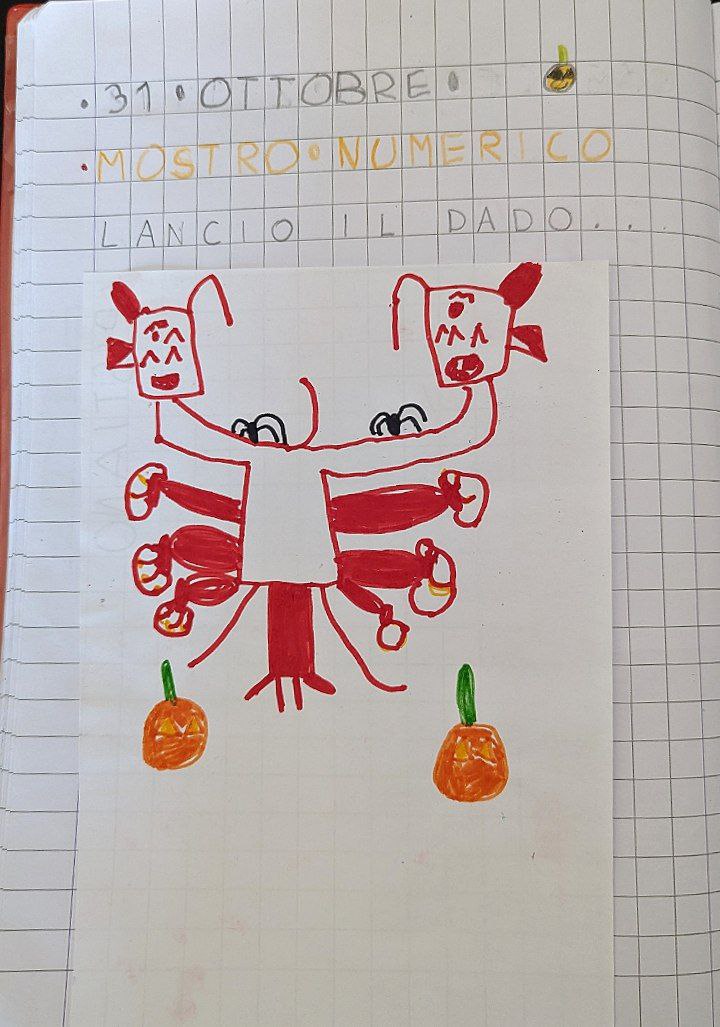 • 31 • OTTOBRE •
• MOSTRO • NUMERICO
LANCIO IL DADO...